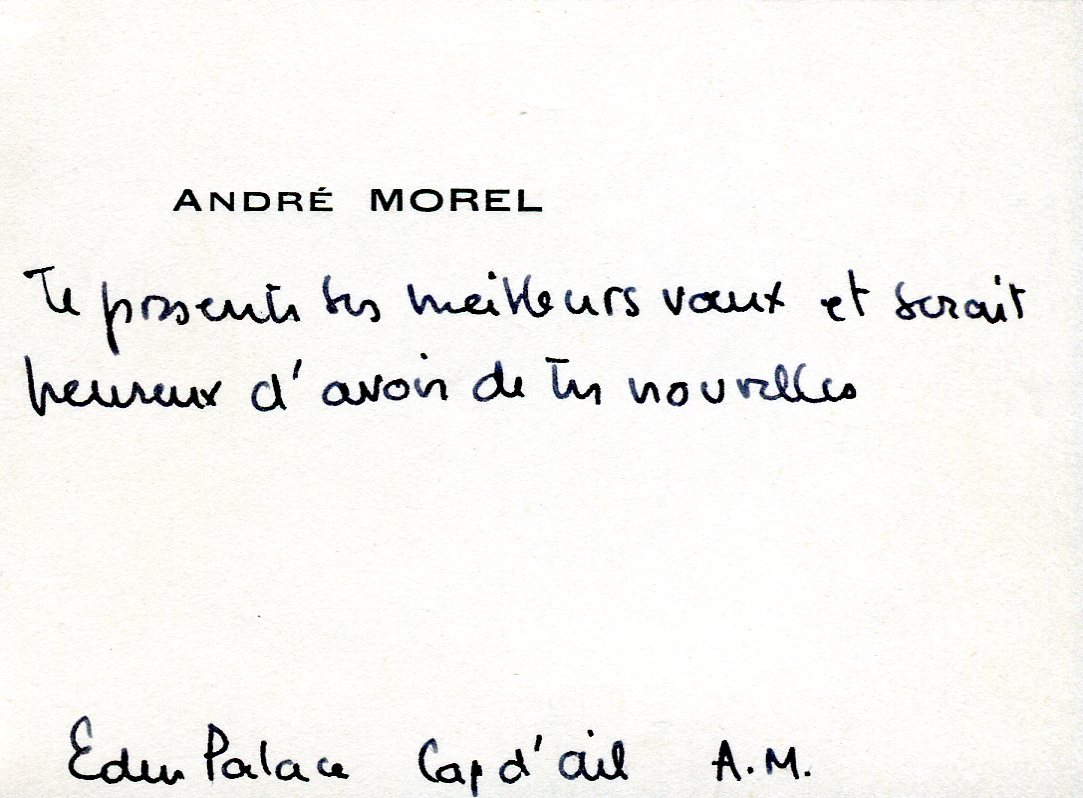 ANDRÉ MOREL
Te présente ses meilleurs vœux et serait
heureux d'avoir de tes nouvelles
Eden Palace Cap d'ail A.M.